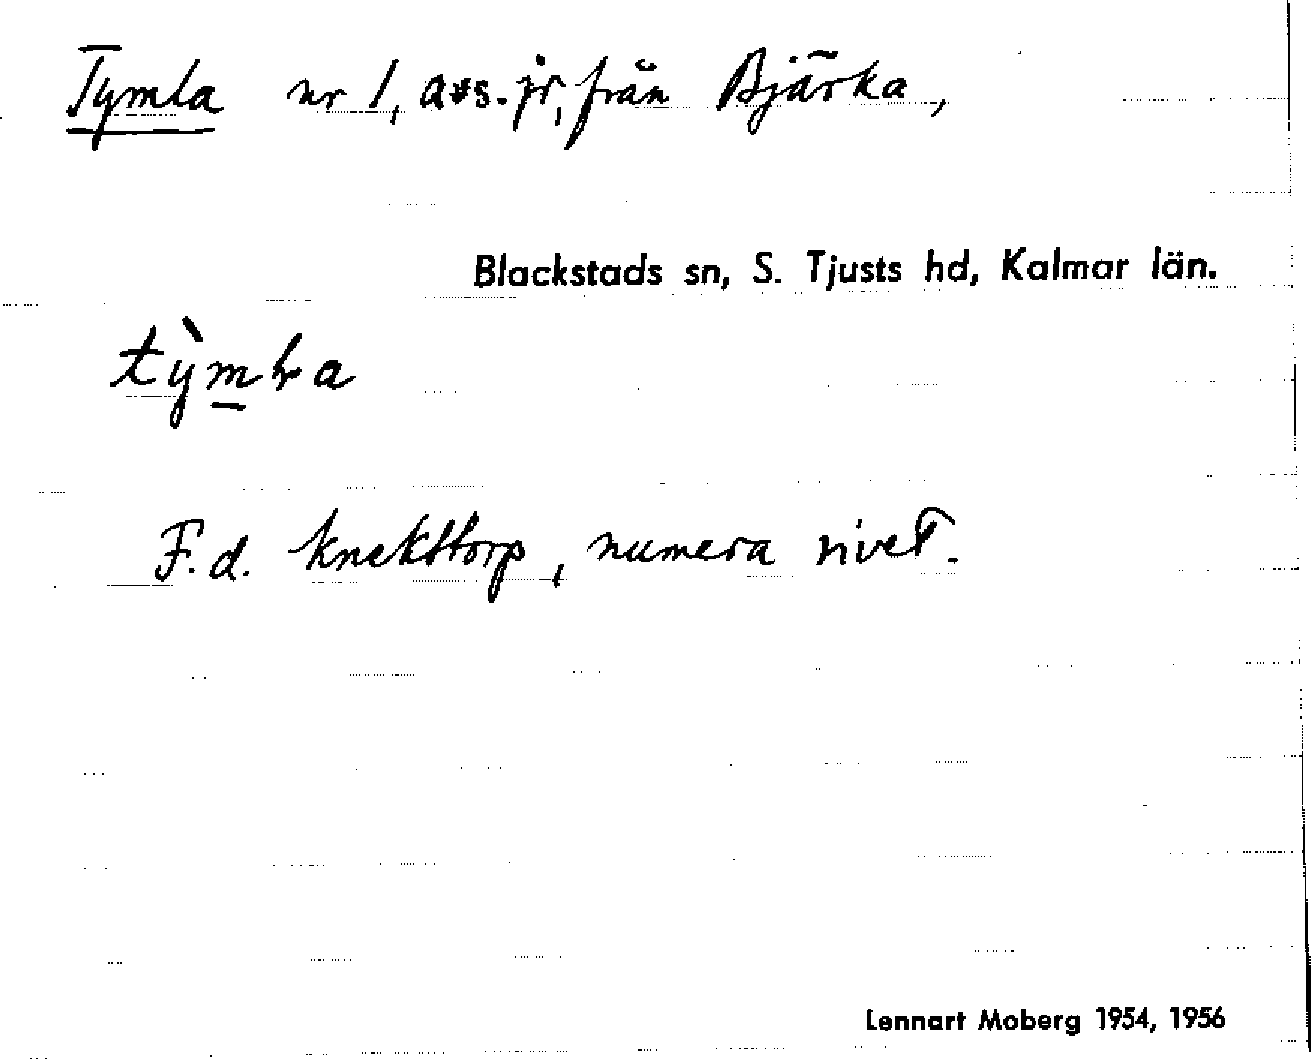 Tymla nr 1, avs. jr, från Bjärka,
Blackstads sn, S. Tjusts hd, Kalmar län.
F.d. knekttorp, numera rivet.
Lennart Moberg 1954, 1956